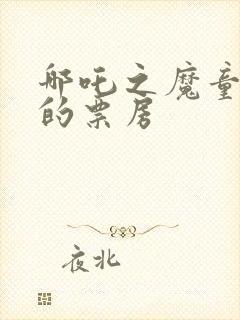 哪吒之魔童
的票房
夜北